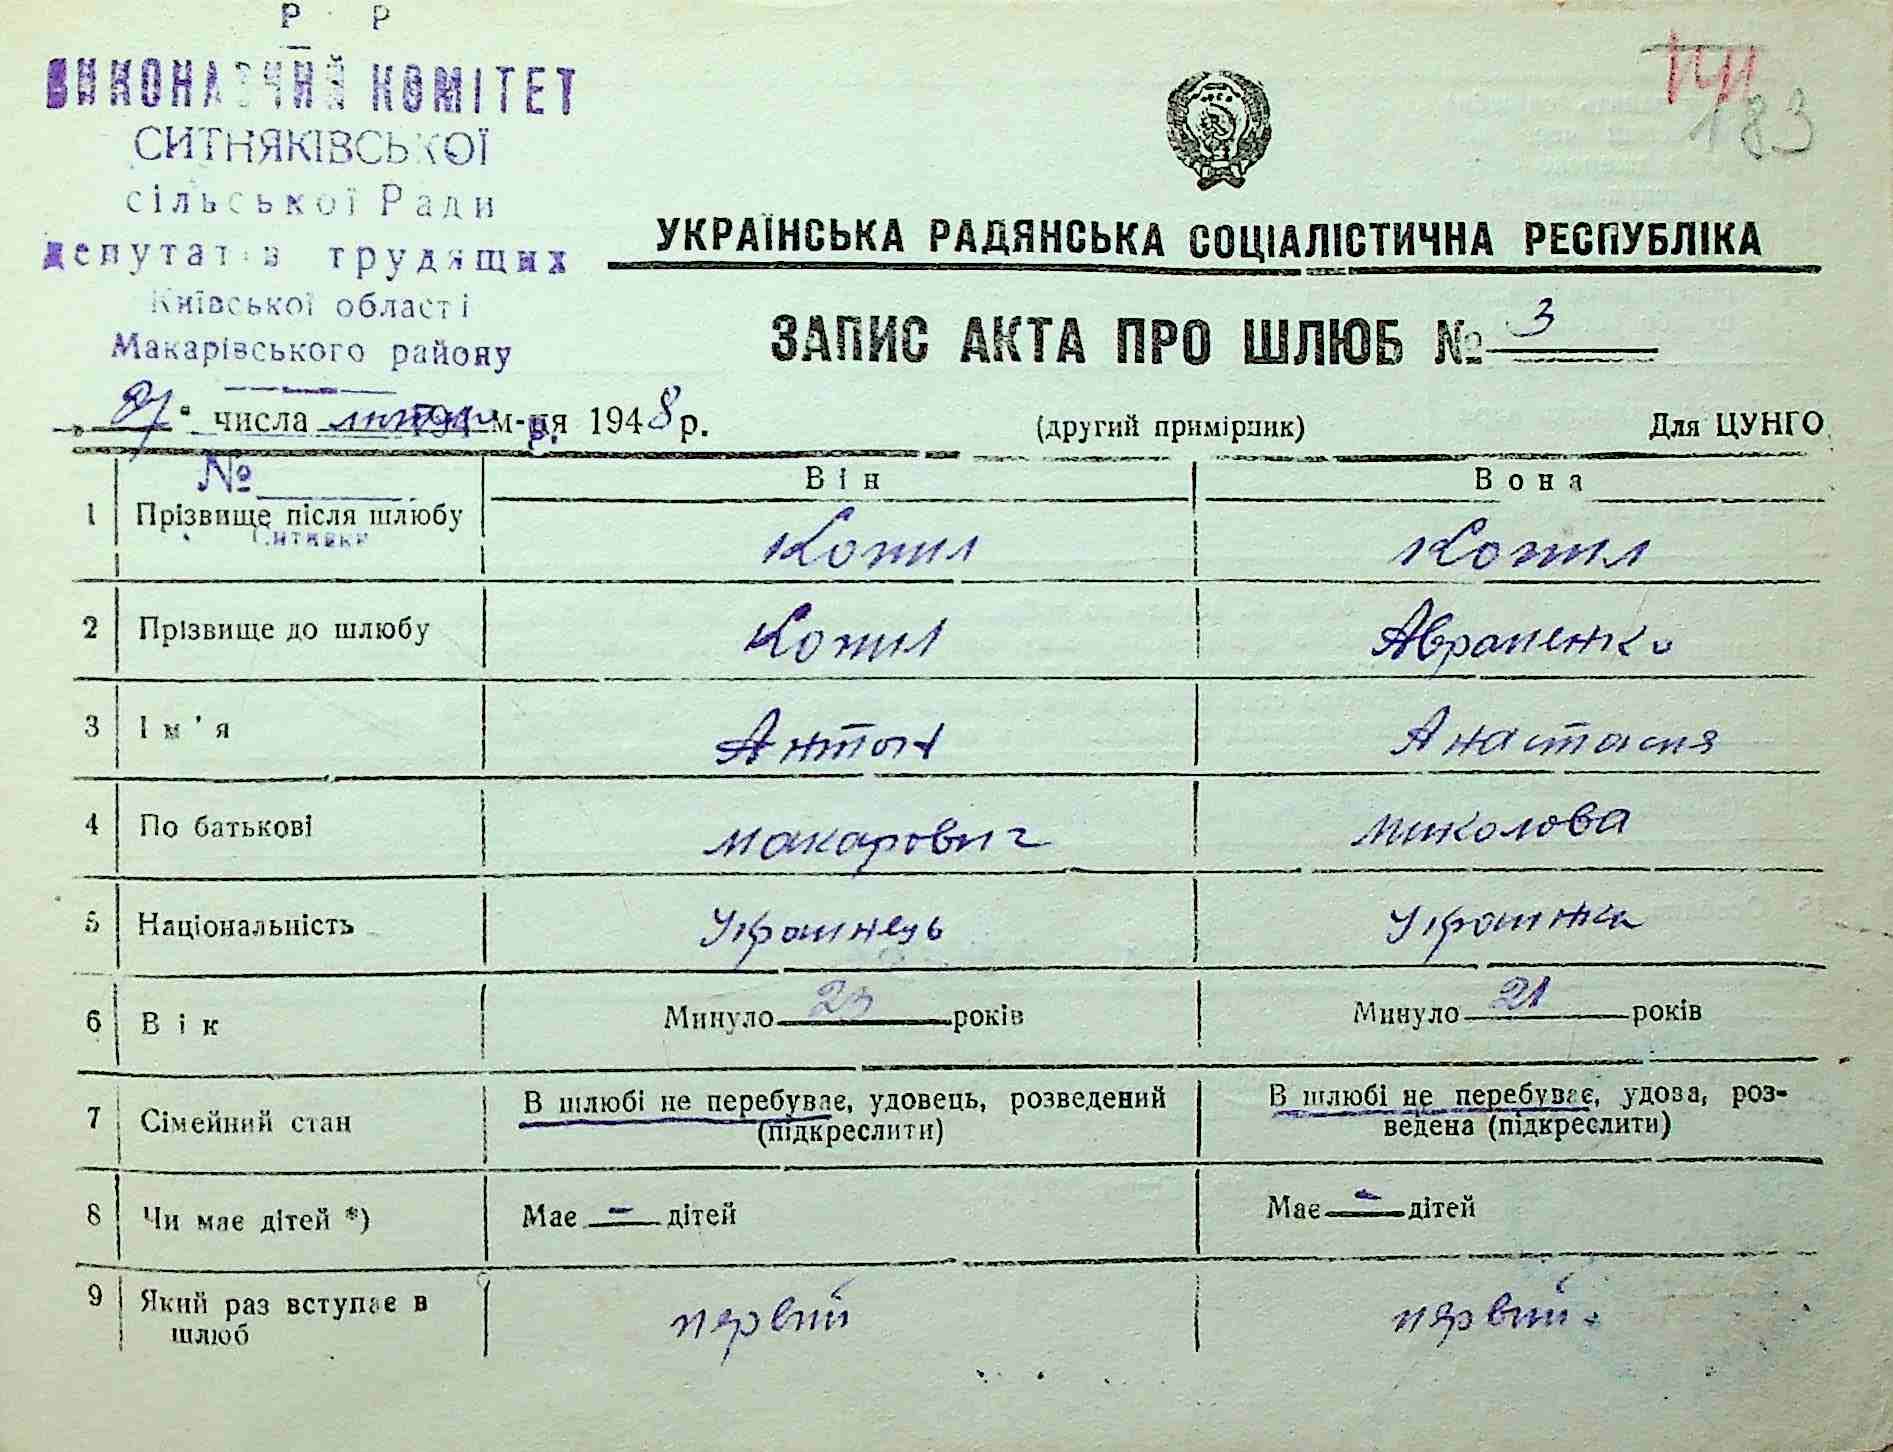 Р Р
ВИКОНАВЧИЙ КОМІТЕТ
СИТНЯКІВСЬКОЇ
сільської Ради
депутатів трудящих
Київської області
Макарівського району
183
УКРАЇНСЬКА РАДЯНСЬКА СОЦІАЛІСТИЧНА РЕСПУБЛІКА
ЗАПИС АКТА ПРО ШЛЮБ № 3
„27“ числа м-ця 1948 р. (другий примірник) Для ЦУНГО
№
Він Вона
1 Прізвище після шлюбу Копил Копил
Ситняки
2 Прізвище до шлюбу Копил Авраменко
3 Ім'я Антон Анастасия
4 По батькові Макарович Миколова
5 Національність Українець Українка
6 Вік Минуло 23 років Минуло 21 років
7 Сімейний стан В шлюбі не перебуває, удовець, розведений (підкреслити) В шлюбі не перебуває, удова, роз-
ведена (підкреслити)
8 Чи має дітей *) Має – дітей Має – дітей
9 Який раз вступає в шлюб первий первий